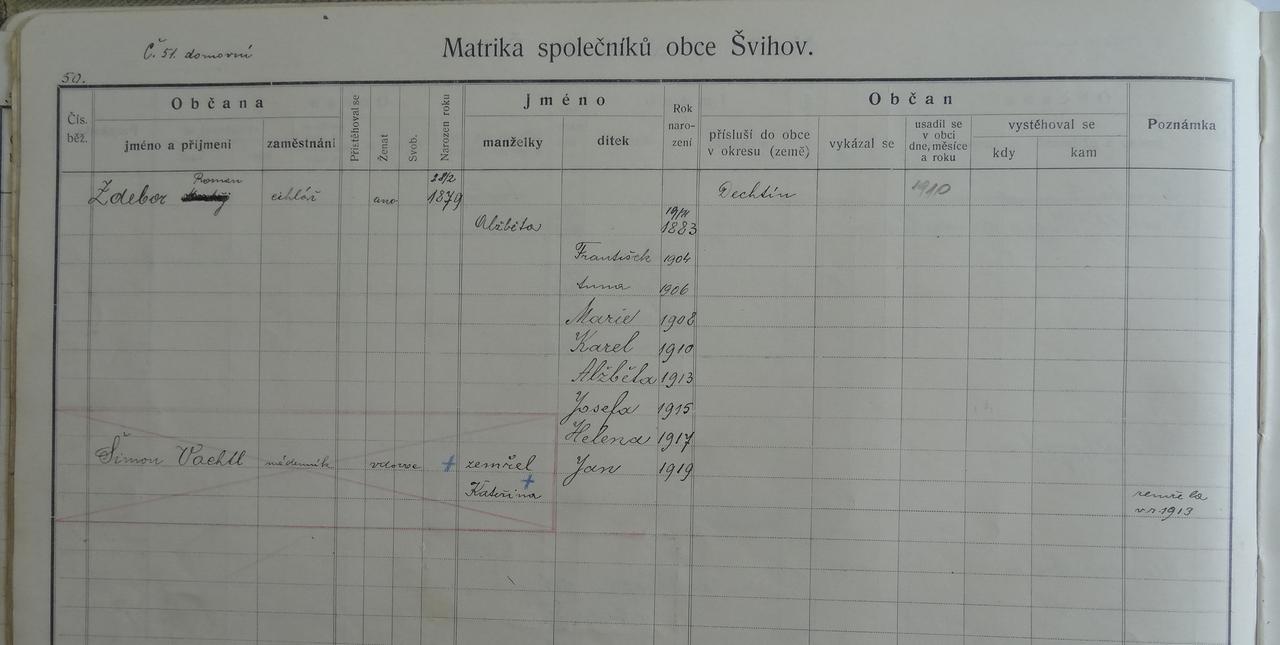 Č. 51. domovní
Matrika společníků obce Švihov.
50.
Čís. běž.
Občana
jméno a příjmení
zaměstnání
Přistěhoval se
Ženat
Svob.
Narozen roku
Jméno
manželky
ditek
Rok naro- zení
Občan
přísluší do obce v okresu (země)
vykázal se
usadil se v obci dne, měsíce a roku
vystěhoval se
kdy
kam
Poznámka
Roman 28/2
Zdebor cihlář ano 1879 Dechtín 1910
19/IV
Alžběta 1883
František 1904
Anna 1906
Marie 1908
Karel 1910
Alžběta 1913
Josefa 1915
Helena 1917
Šimon Vachtl vdovec + zemřel Jan 1919
Kateřina + zemřela
v r 1913